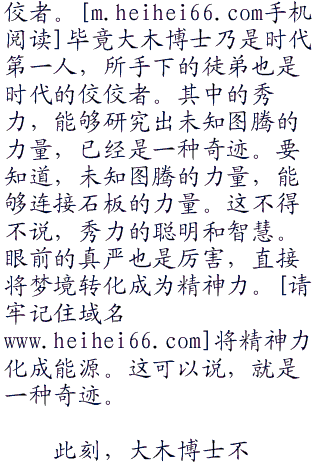 佼者。[m.heihei66.com手机
阅读]毕竟大木博士乃是时代
第一人，所手下的徒弟也是
时代的佼佼者。其中的秀
力，能够研究出未知图腾的
力量，已经是一种奇迹。要
知道，未知图腾的力量，能
够连接石板的力量。这不得
不说，秀力的聪明和智慧。
眼前的真严也是厉害，直接
将梦境转化成为精神力。[请
牢记住域名
www.heihei66.com]将精神力
化成能源。这可以说，就是
一种奇迹。
此刻，大木博士不